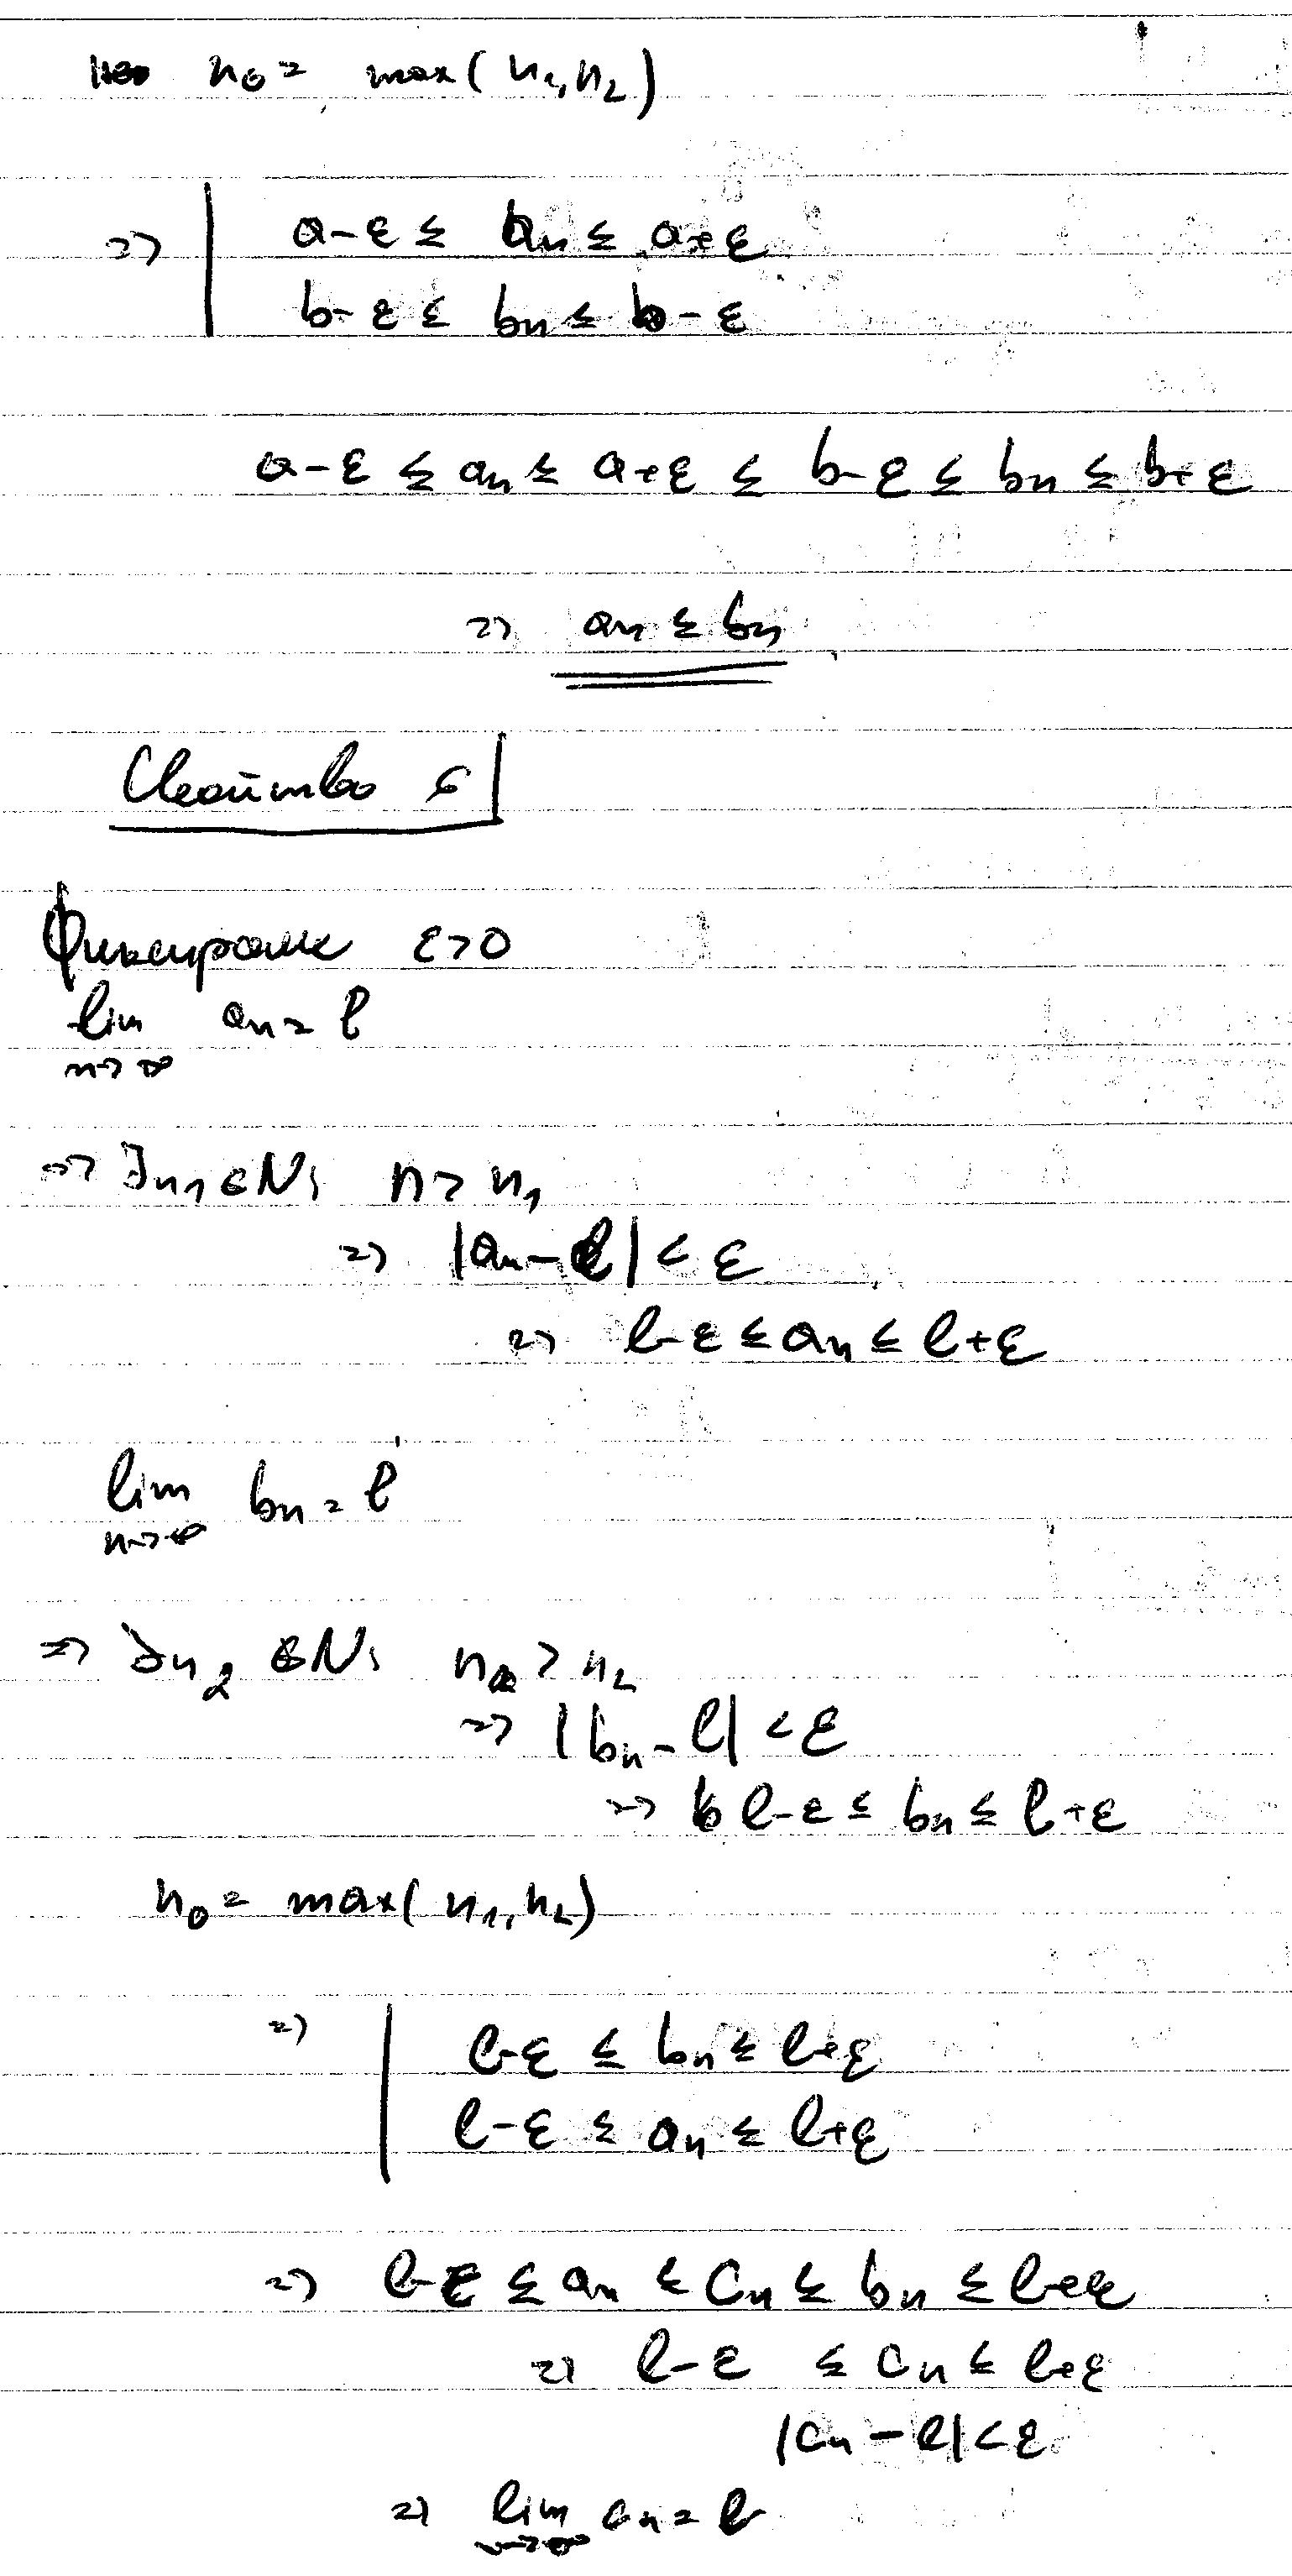 n₀ = max(n₁, n₂)
=> | a-ε ≤ aₙ ≤ a+ε
b-ε ≤ bₙ ≤ b-ε
a-ε ≤ aₙ ≤ a+ε ≤ b-ε ≤ bₙ ≤ b+ε
=> aₙ ≤ bₙ
Свойство 6
Фиксираме ε>0
lim aₙ = l
n→∞
=> ∃n₁∈N; n > n₁
=> |aₙ - l| < ε
=> l-ε ≤ aₙ ≤ l+ε
lim bₙ = l
n→∞
=> ∃n₂∈N; n > n₂
=> |bₙ - l| < ε
=> l-ε ≤ bₙ ≤ l+ε
n₀ = max(n₁, n₂)
=> | l-ε ≤ bₙ ≤ l+ε
l-ε ≤ aₙ ≤ l+ε
=> l-ε ≤ aₙ ≤ cₙ ≤ bₙ ≤ l+ε
=> l-ε ≤ cₙ ≤ l+ε
|cₙ - l| < ε
=> lim cₙ = l
n→∞